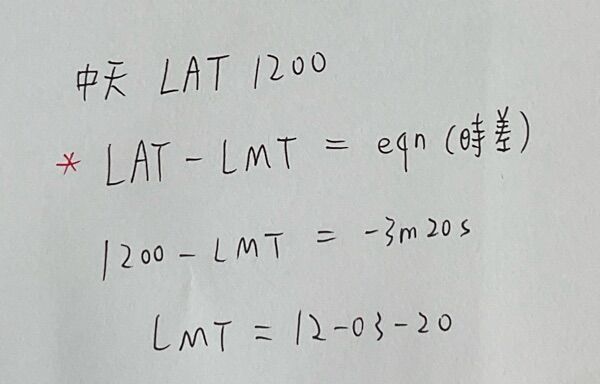 中天 LAT 1200
* LAT - LMT = eqn (時差)
1200 - LMT = -3m 20s
LMT = 12-03-20